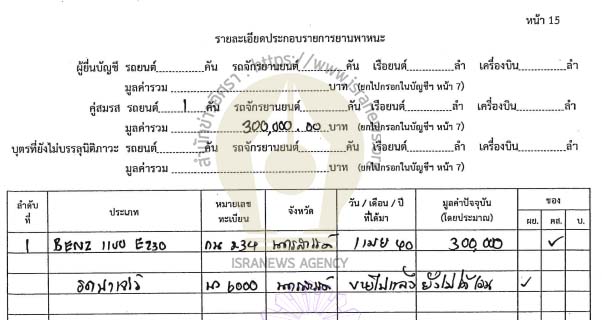 หน้า 15
รายละเอียดประกอบรายการยานพาหนะ
ผู้ยื่นบัญชี รถยนต์............คัน รถจักรยานยนต์............คัน เรือยนต์............ลำ เครื่องบิน............ลำ
มูลค่ารวม............บาท (ยกไปกรอกในบัญชีฯ หน้า 7)
คู่สมรส รถยนต์ 1 คัน รถจักรยานยนต์............คัน เรือยนต์............ลำ เครื่องบิน............ลำ
มูลค่ารวม 300,000.00 บาท (ยกไปกรอกในบัญชีฯ หน้า 7)
บุตรที่ยังไม่บรรลุนิติภาวะ รถยนต์............คัน รถจักรยานยนต์............คัน เรือยนต์............ลำ เครื่องบิน............ลำ
มูลค่ารวม............บาท (ยกไปกรอกในบัญชีฯ หน้า 7)
สำนักข่าวอิศรา : https://www.isranews.org
ลำดับที่ ประเภท หมายเลขทะเบียน จังหวัด วัน / เดือน / ปี ที่ได้มา มูลค่าปัจจุบัน (โดยประมาณ) ของ
ผย. คส. บ.
1 BENZ E230 234 40 300,000 ✓
ISRANEWS AGENCY
6000 ขายไปแล้ว ยังไม่ได้โอน ✓